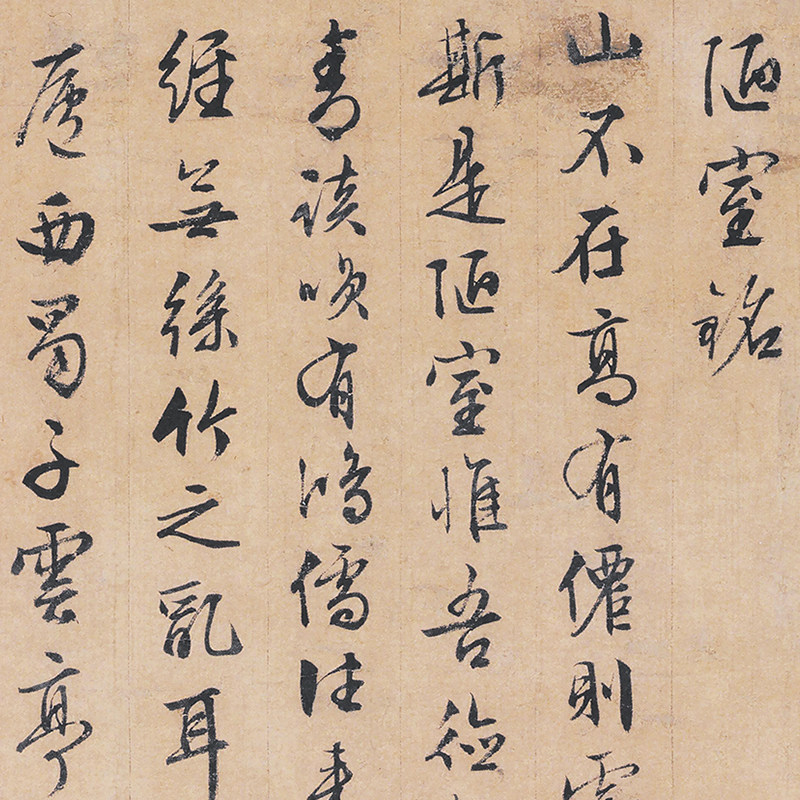 陋室銘
山不在高有僊則
斯是陋室惟吾德
青談咲有鴻儒往來
經無絲竹之亂耳
廬西蜀子雲亭